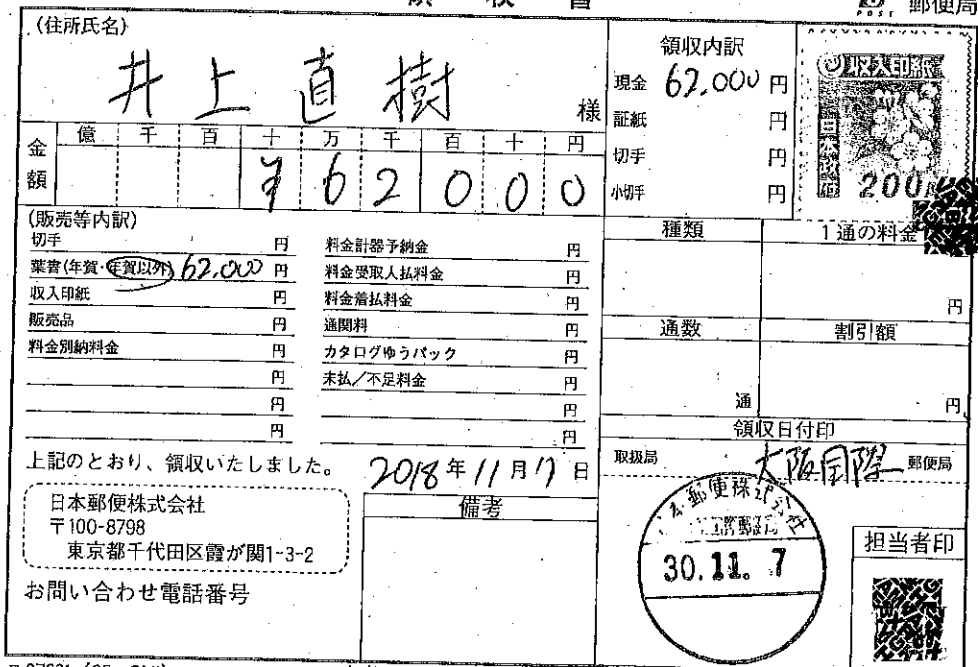 領収書
郵便局
POST
(住所氏名)
井上直樹 様
金額
億 千 百 十 万 千 百 十 円
¥ 6 2 0 0 0
領収内訳
現金 62,000 円
証紙 円
切手 円
小切手 円
収入印紙
日本政府
200
(販売等内訳)
切手 円
葉書(年賀・年賀以外) 62,000 円
収入印紙 円
販売品 円
料金別納料金 円
円
円
円
料金計器予納金 円
料金受取人払料金 円
料金着払料金 円
通関料 円
カタログゆうパック 円
未払/不足料金 円
円
円
種類
1通の料金
円
通数
通
割引額
円
領収日付印
取扱局 大阪国際 郵便局
上記のとおり、領収いたしました。
2018年11月7日
日本郵便株式会社
〒100-8798
東京都千代田区霞が関1-3-2
お問い合わせ電話番号
備考
郵便株式会社
30.11.7
担当者印